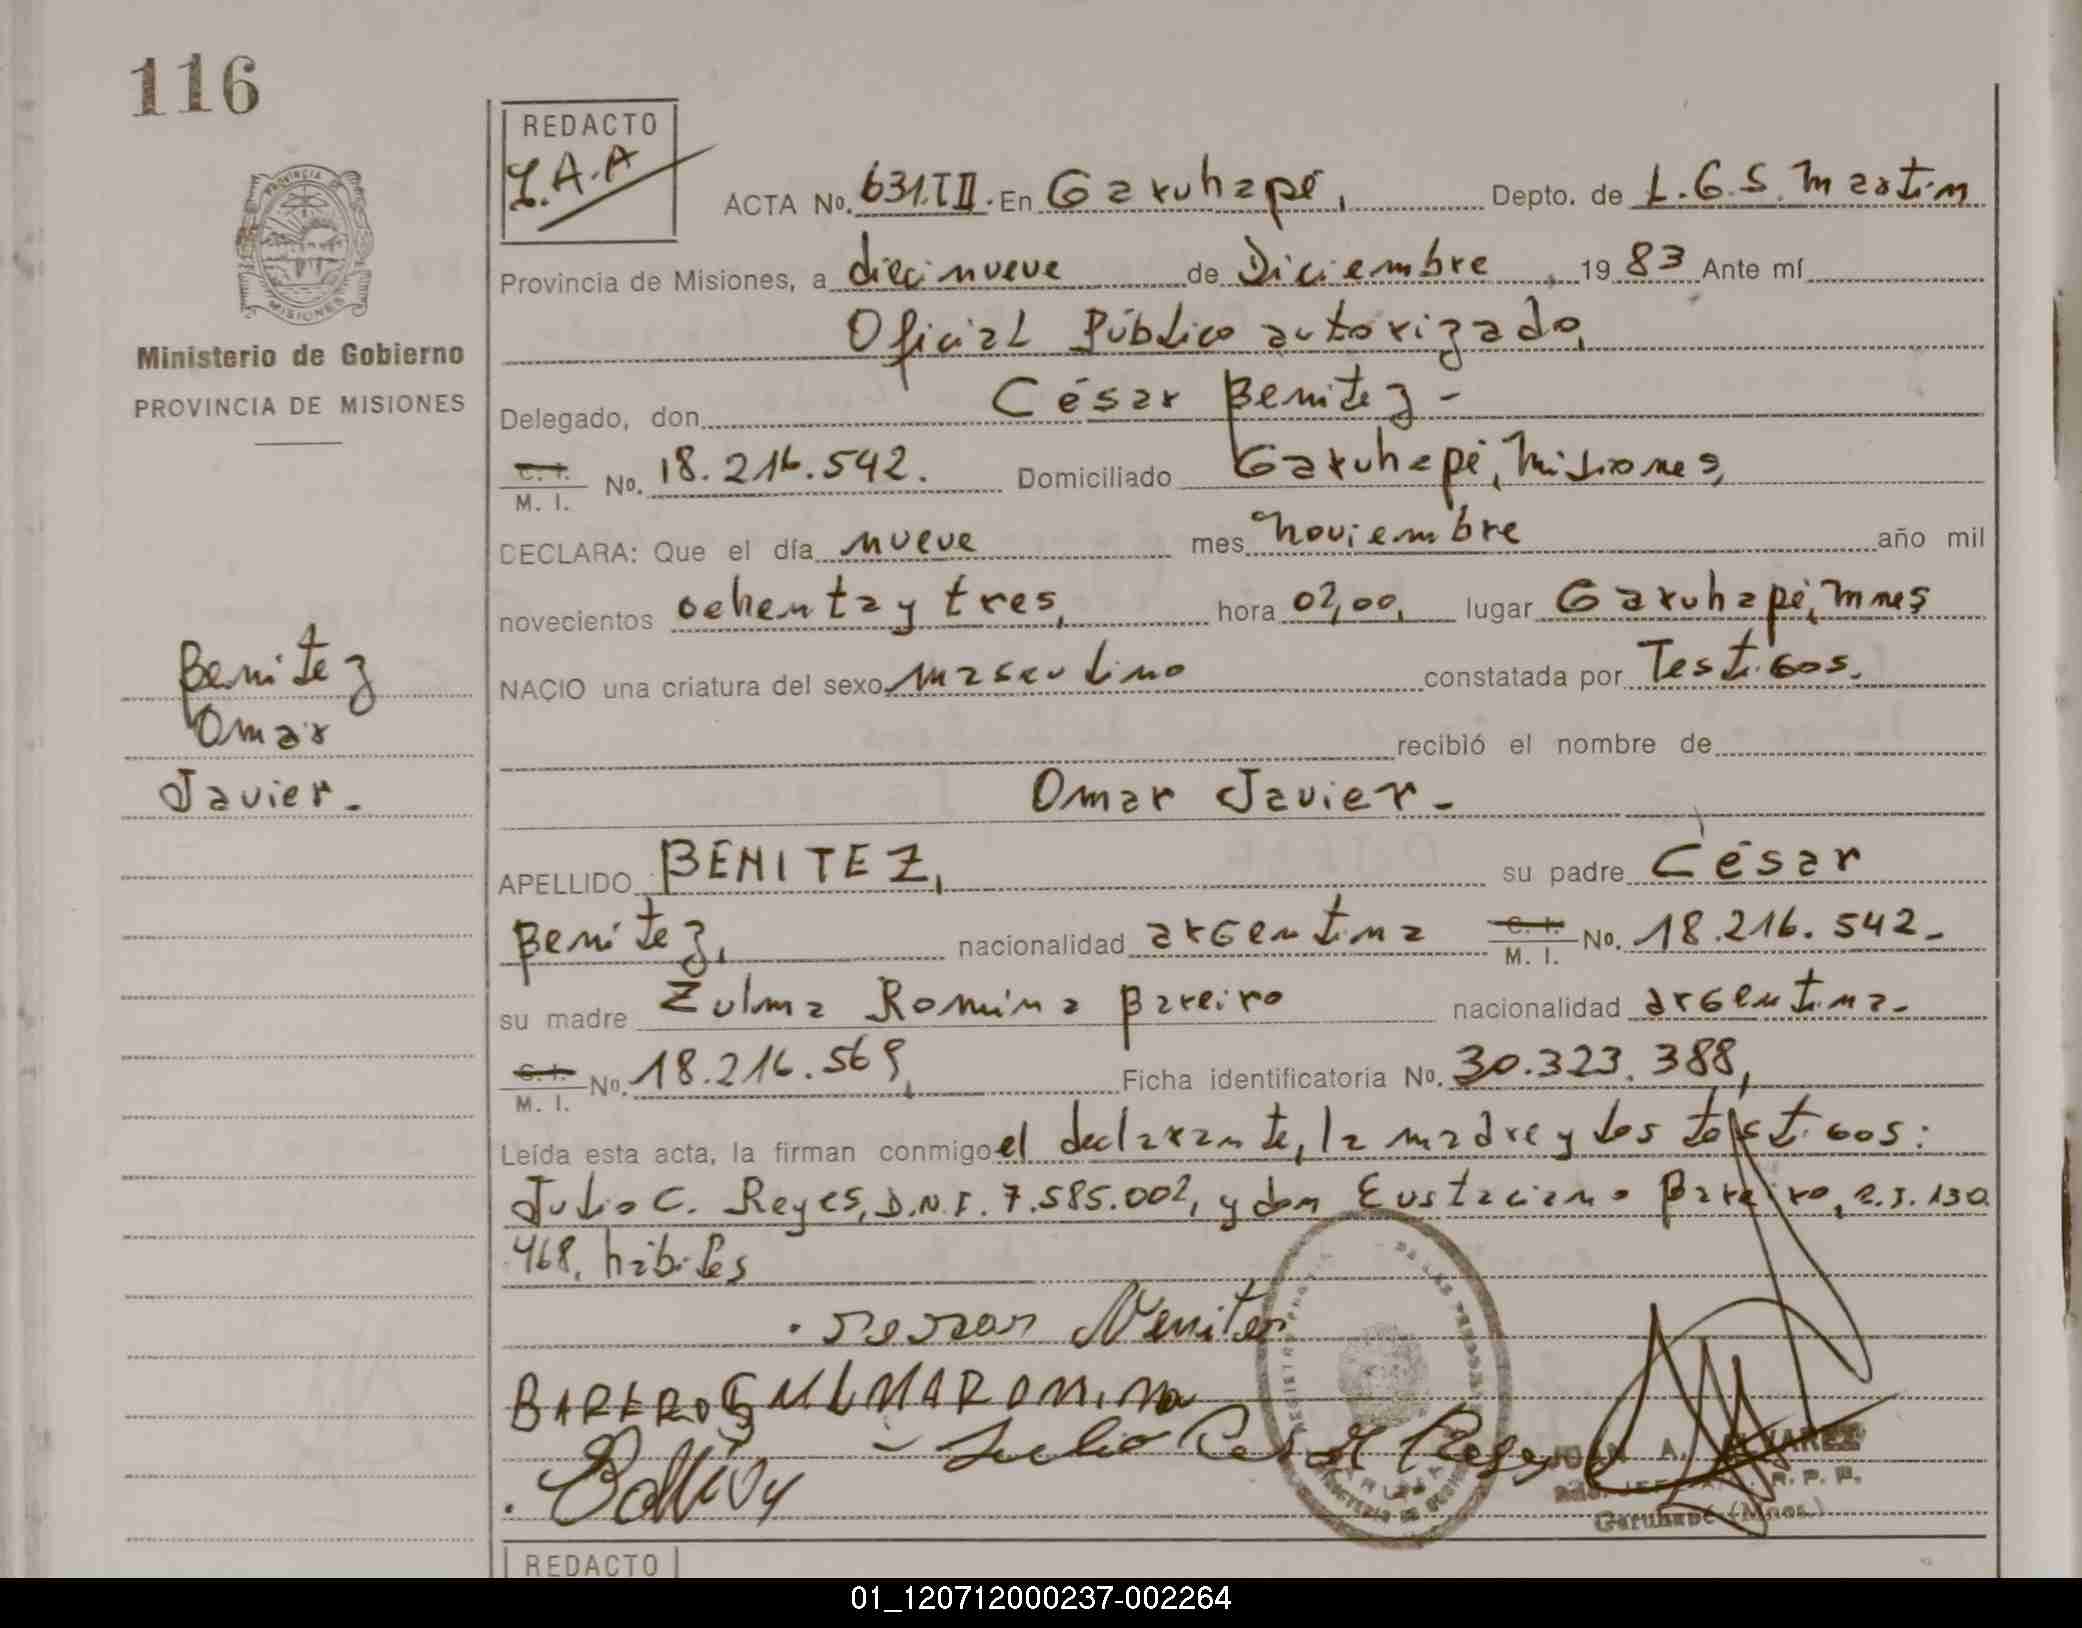 116
REDACTO
J.A.A
ACTA No. 631.TII. En Garuhapé, Depto. de L.G.S. Martin
Provincia de Misiones, a diecinueve de Diciembre, 1983 Ante mí
Oficial Público autorizado,
Delegado, don César Benitez -
C. I. M. I. No. 18.216.542. Domiciliado Garuhapé, Misiones,
DECLARA: Que el día nueve mes noviembre año mil
novecientos ochenta y tres, hora 02,00, lugar Garuhapé, Mnes
NACIO una criatura del sexo masculino constatada por Testigos.
recibió el nombre de
Omar Javier -
APELLIDO BENITEZ, su padre César
Benitez, nacionalidad argentina C. I. M. I. No. 18.216.542 -
su madre Zulma Romina Bareiro nacionalidad argentina -
C. I. M. I. No. 18.216.569, Ficha identificatoria No. 30.323.388,
Leída esta acta, la firman conmigo el declarante, la madre y los testigos:
Julio C. Reyes, D.N.I. 7.585.002, y don Eustaciano Bareiro, 2.3.130
468, hábiles
PROVINCIA DE MISIONES
Ministerio de Gobierno
PROVINCIA DE MISIONES
Benitez
Omar
Javier -
Julio Cesar Reyes
JUAN A. ALVAREZ
R. P. P.
Garuhapé (Mnes.)
REDACTO
01_120712000237-002264